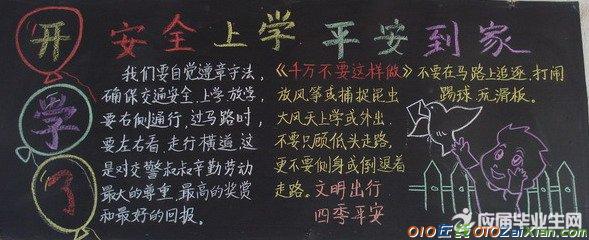 开学了
安全上学 平安到家
我们要自觉遵章守法,
确保交通安全,上学放学,
要右侧通行,过马路时,
要左右看,走行横道,这
是对交警叔叔辛勤劳动
最大的尊重,最高的奖赏
和最好的回报。
《千万不要这样做》
放风筝或捕捉昆虫
大风天上学或外出,
不要只顾低头走路,
更不要侧身或倒退着
走路。文明出行
四季平安
不要在马路上追逐,打闹
踢球,玩滑板。
应届毕业生网
010在线 010ZaiXian.com